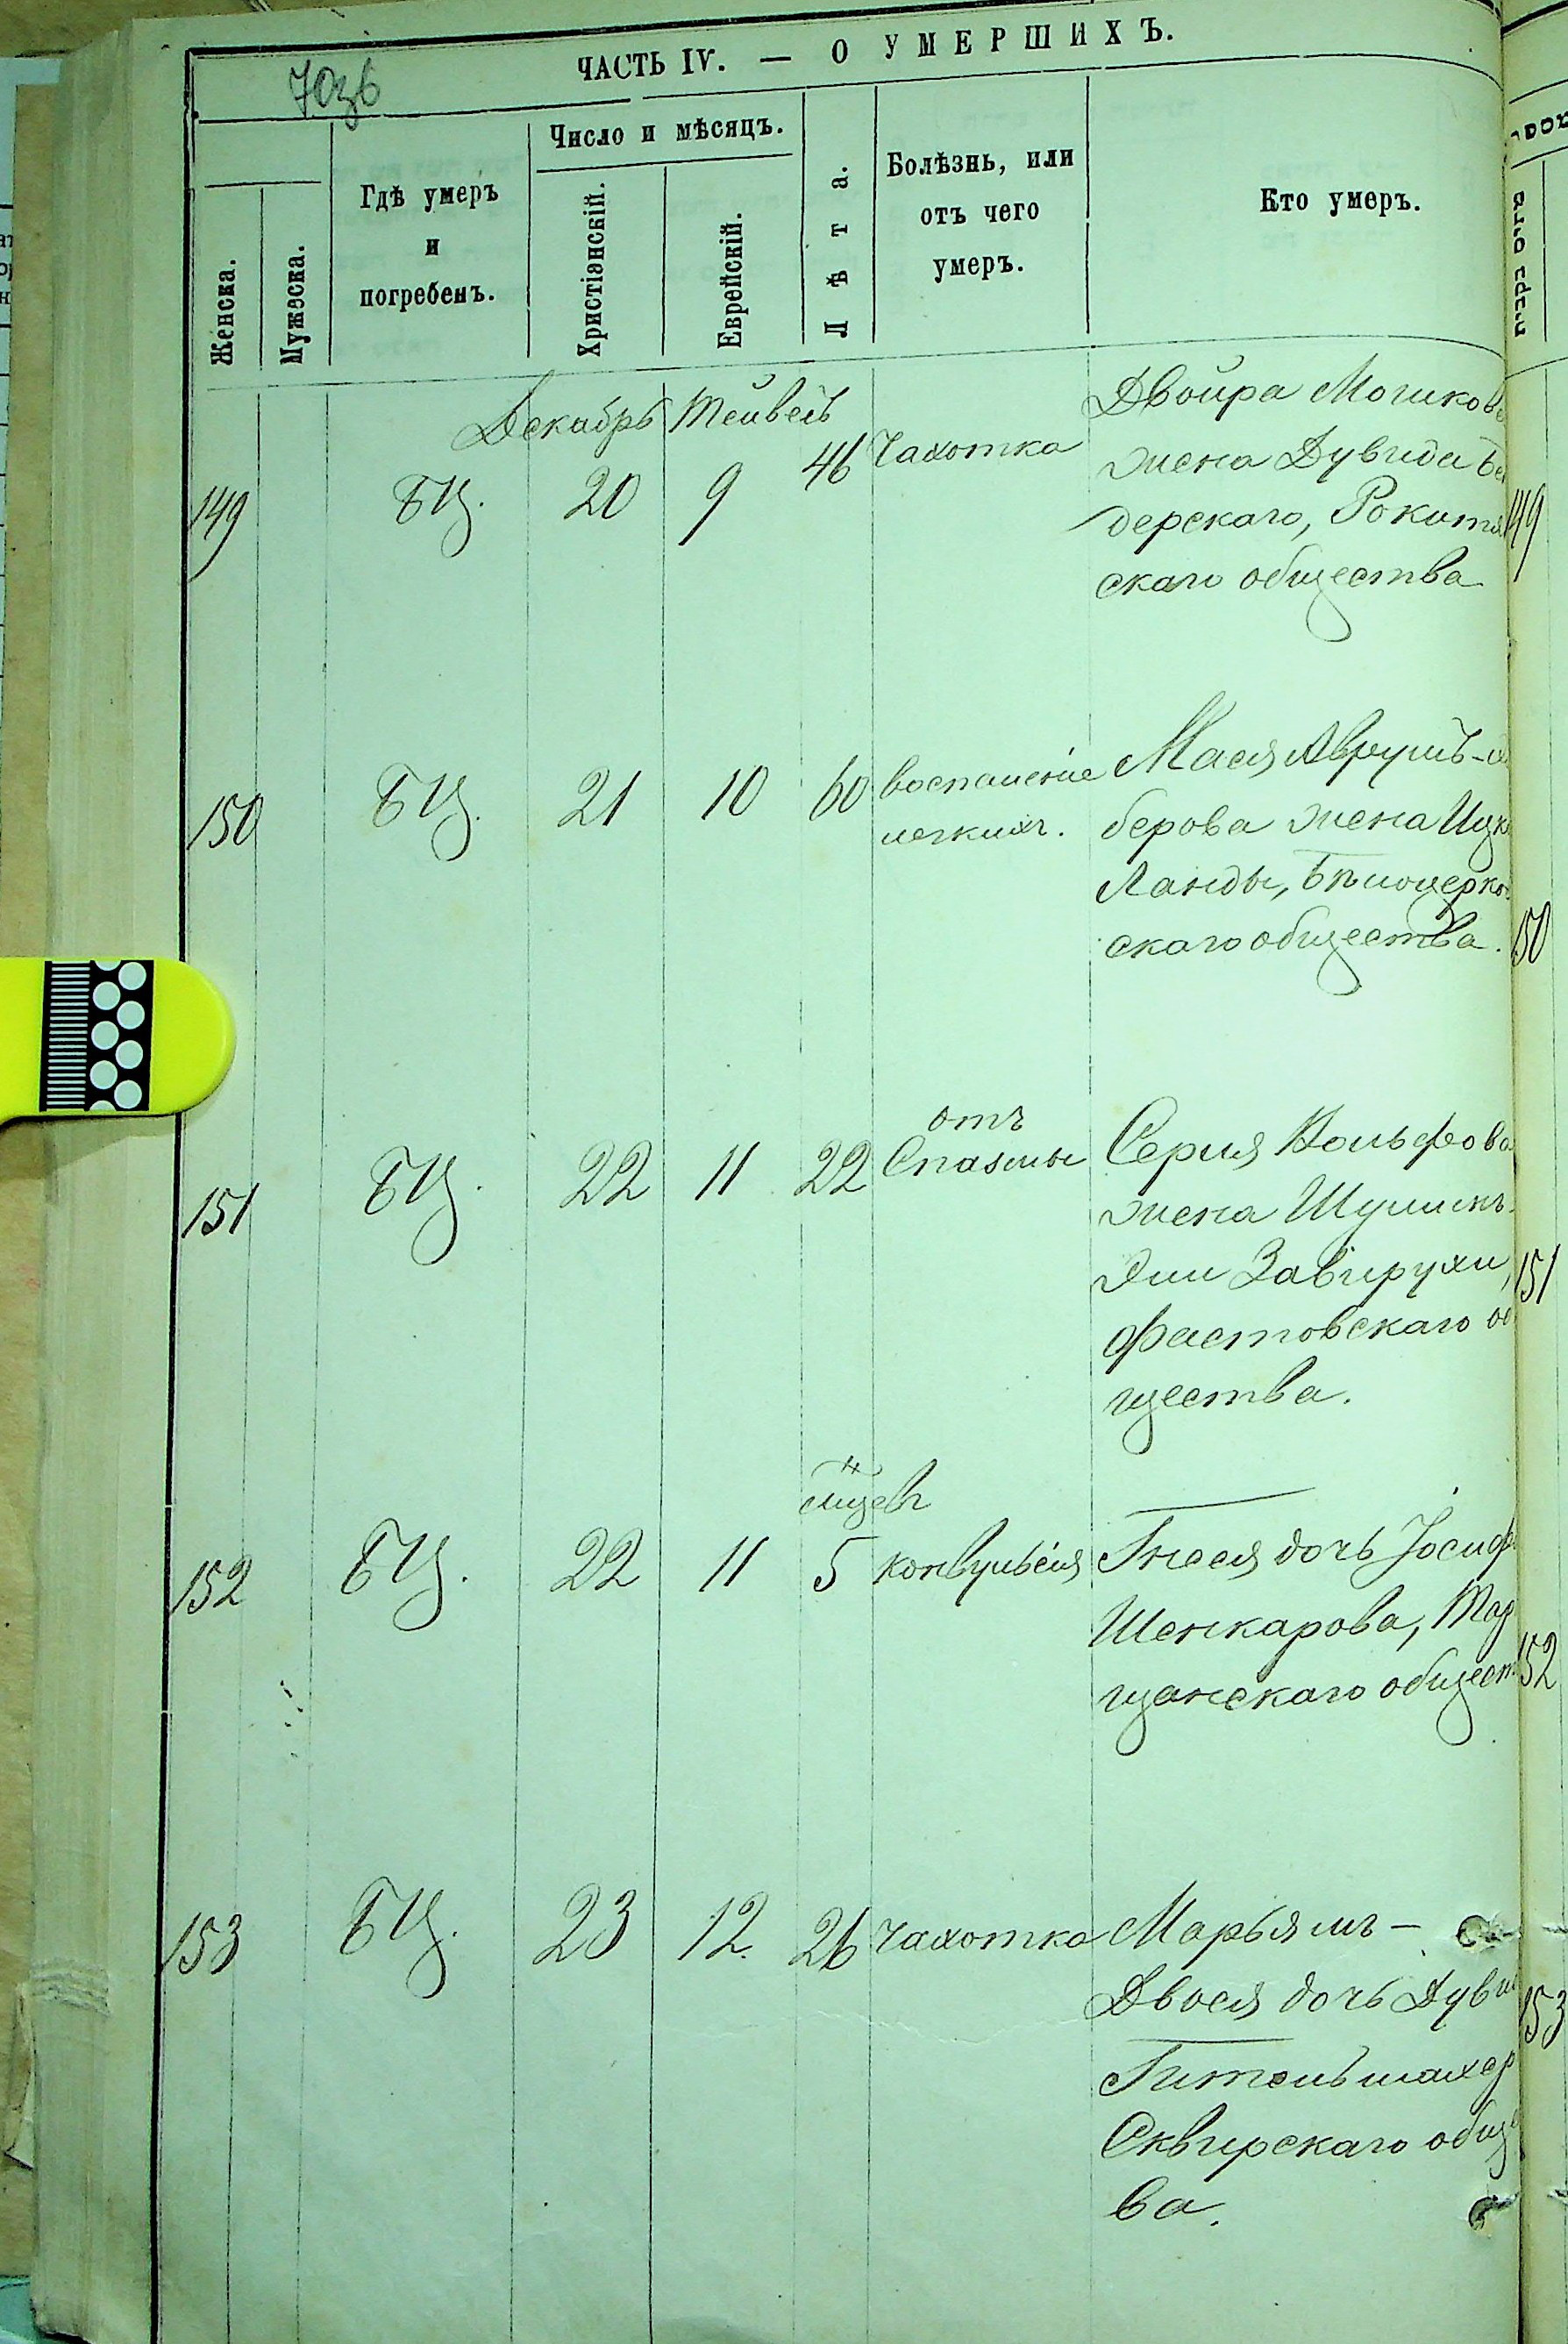 70зв
ЧАСТЬ IV. — О УМЕРШИХЪ.
Женска.
Мужеска.
Гдѣ умеръ
и
погребенъ.
Число и мѣсяцъ.
Христіянскій.
Еврейскій.
Лѣта.
Болѣзнь, или
отъ чего
умеръ.
Кто умеръ.
Декабрь Тейвесъ
149 БЦ. 20 9 46 Чахотка
Двойра Мошкова
жена Дувида Бен
дерскаго, Рокитян
скаго общества
150 БЦ. 21 10 60 воспаленіе
легкихъ.
Мася Аврумъ-
берова жена Ицк
Ланды, Бѣлоцерков
скаго общества.
151 БЦ. 22 11 22 отъ
Спазмы
Серия Вольфова
жена Шулимъ-
Эли Завирухи,
Фастовскаго об
щества.
152 БЦ. 22 11 мцевъ
5 конвульсія
Гнеся дочь Іосиф
Шенкарова, Тар
щанскаго общест
153 БЦ. 23 12. 26 Чахотка
Марьямъ-
Двося дочь Дуви
Гительмахер
Сквирскаго общес
ва.
149
150
151
152
153